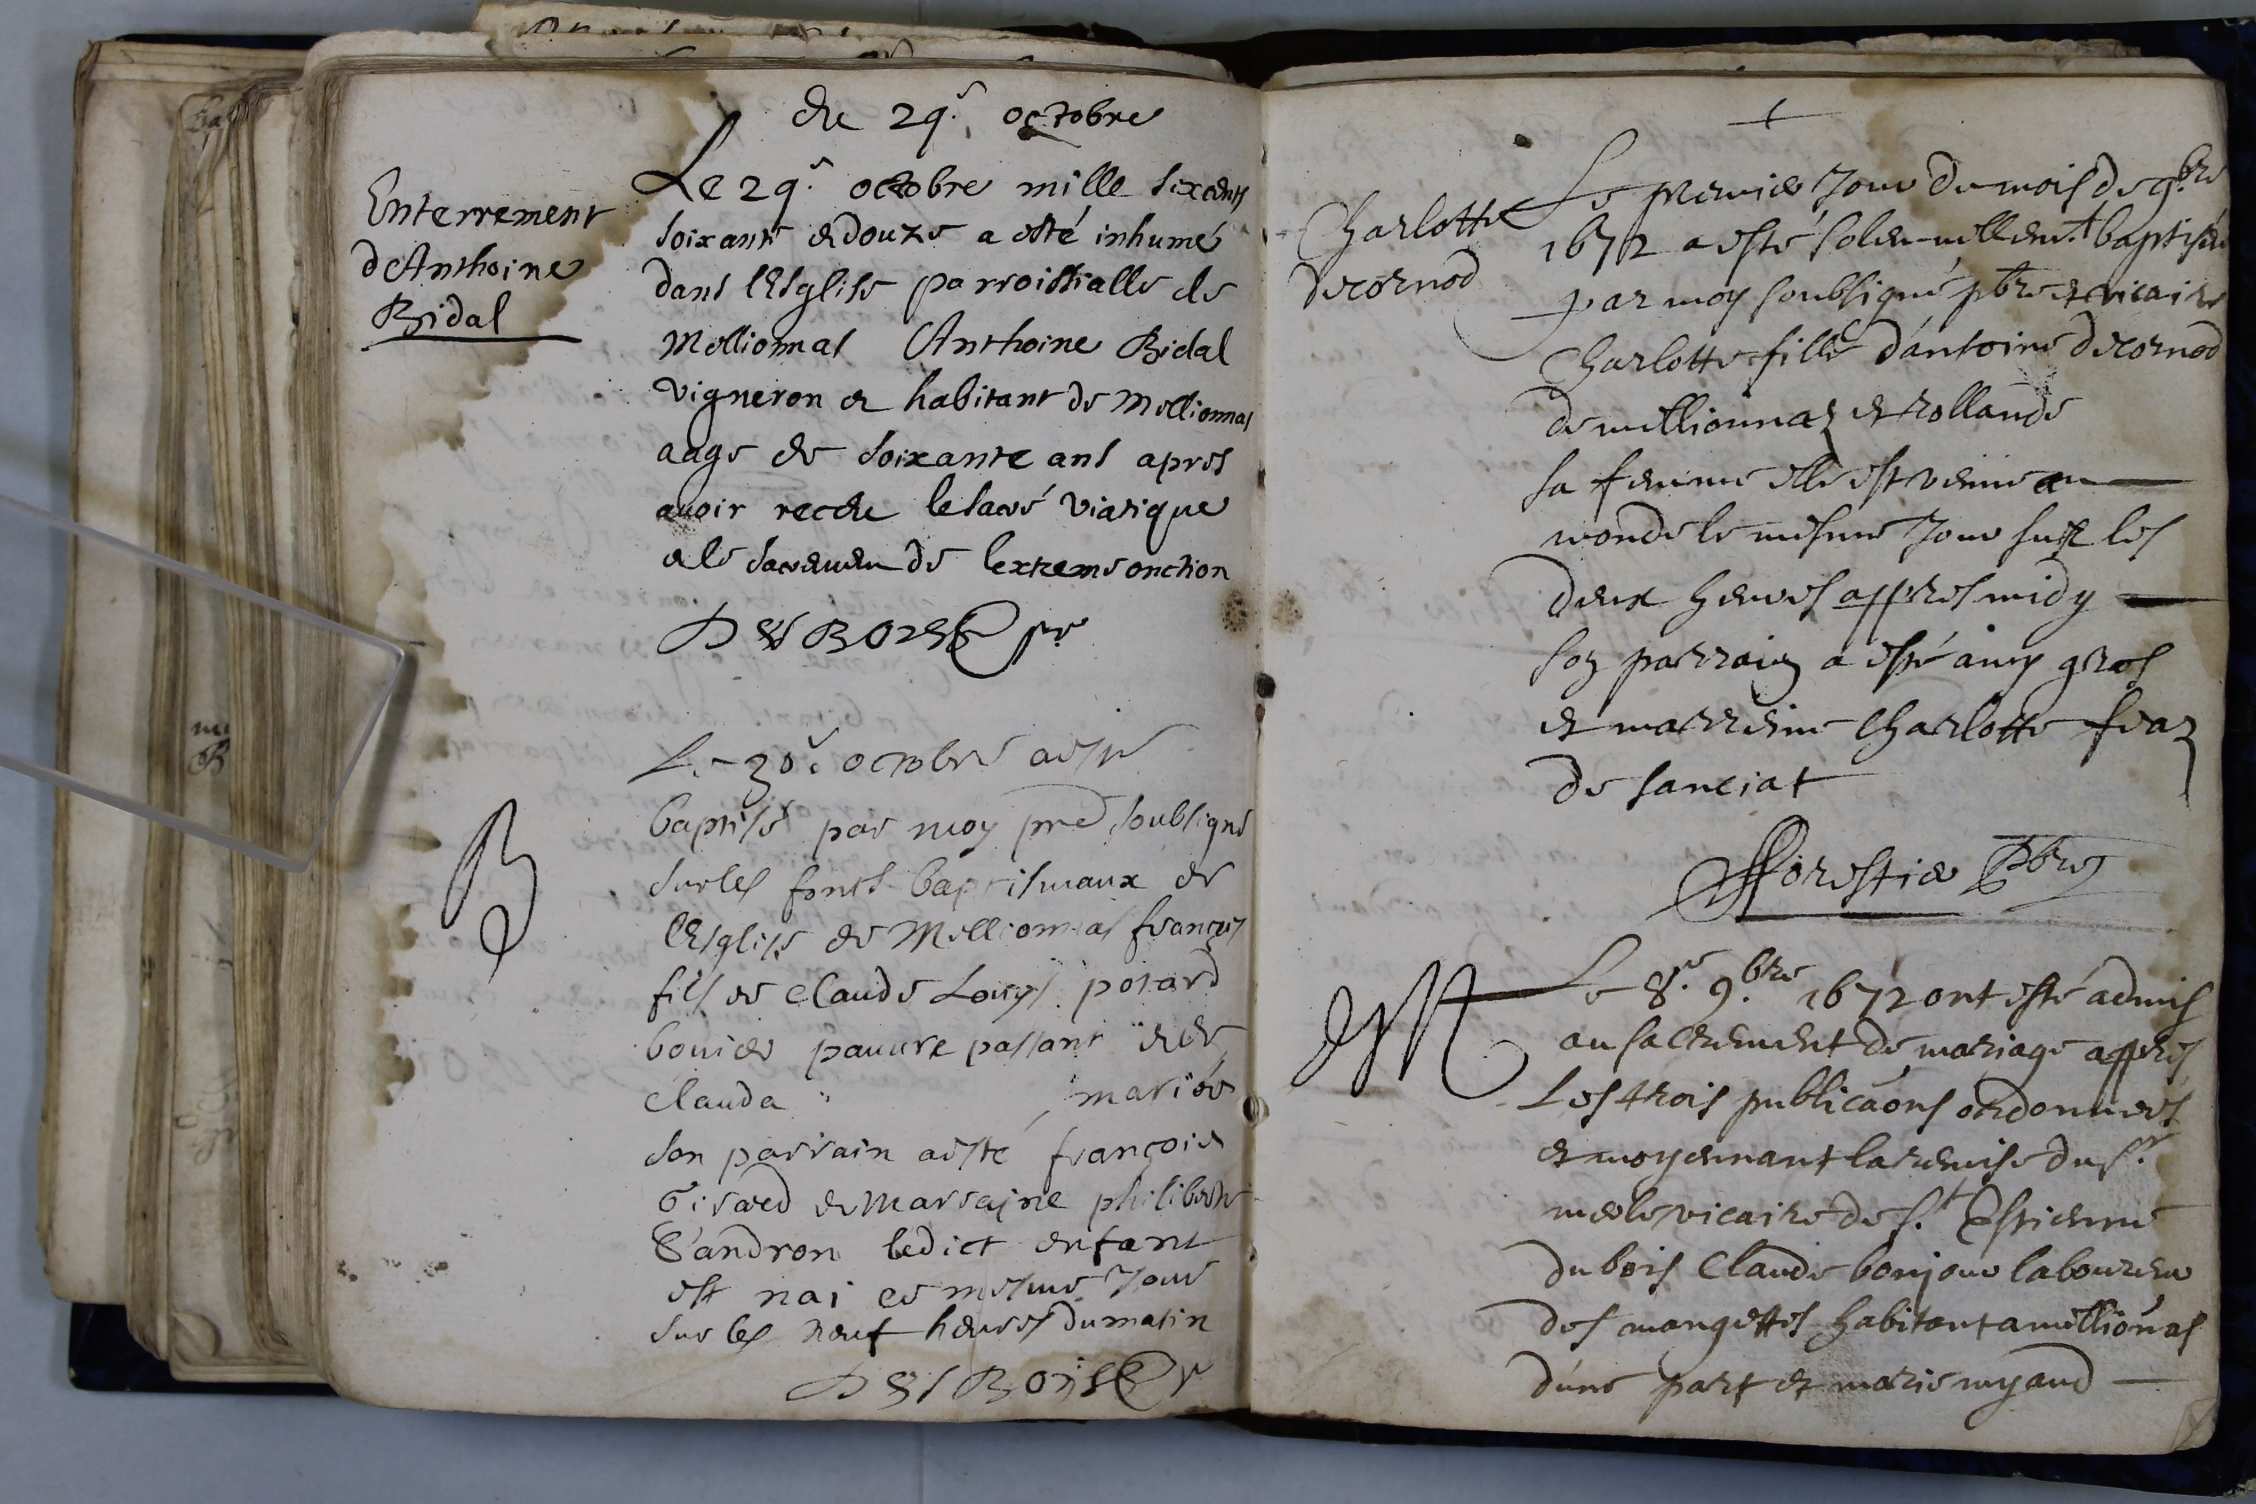 Du 29.e octobre
Enterrement
d'Anthoine
Bidal
Le 29.e octobre mille sixcents
soixante & douze a esté inhumé
dans l'Esglise parroissialle de
Mellionnas Anthoine Bidal
vigneron et habitant de Mellionnas
aage de soixante ans apres
avoir receu le sacré viatique
et le sacrement de l'extreme onction
Desbois ptre
Le 30.e octobre a esté
B
baptisé par moy pre soubsigné
sur les fonts baptismaux de
l'Esglise de Mellionnas françois
fils de Claude Louys potard
bouvier pauvre passant & de
Clauda mariés
son parrain a esté françois
Girard & Marraine philiberte
Gandron ledict enfant
est nai ce mesme Jour
sur les neuf heures du matin
Desbois ptr
Charlotte
decornod
Le premier Jour du mois de 9.bre
1672 a esté solennellem.t baptisée
par moy soubsigné pbre et vicaire
Charlotte fille d'antoine decornod
de millionnaz et rollande
sa femme elle est venue au
monde le mesme Jour sur les
deux heures appres midy
son parrain a esté aimy gros
et marreine Charlotte feaz
de sanciat
fforestier Pbre
M
Le 8.e 9.bre 1672 ont esté admis
au sacrement de mariage appres
Les trois publicaons ordonnees
et moyennant la remise du s.r
merle vicaire de s.t Estienne
du bois Claude bonjour laboureur
des mangettes habitant a millionas
d'une part et marie myand